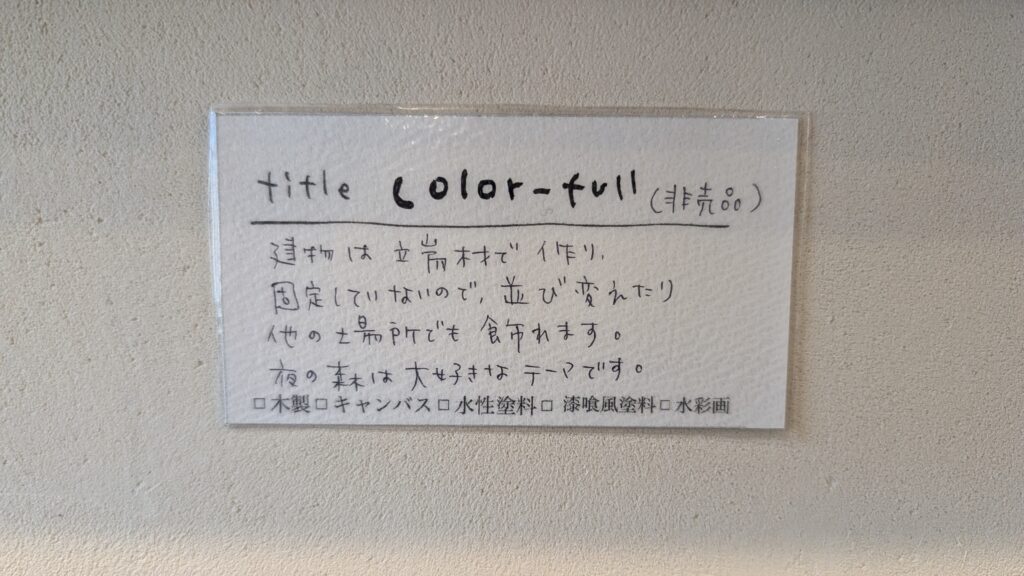 title color-full (非売品)
建物は立端材で作り、
固定していないので、並び変えたり
他の場所でも飾れます。
夜の森は大好きなテーマです。
□木製□キャンバス□水性塗料□ 漆喰風塗料□水彩画